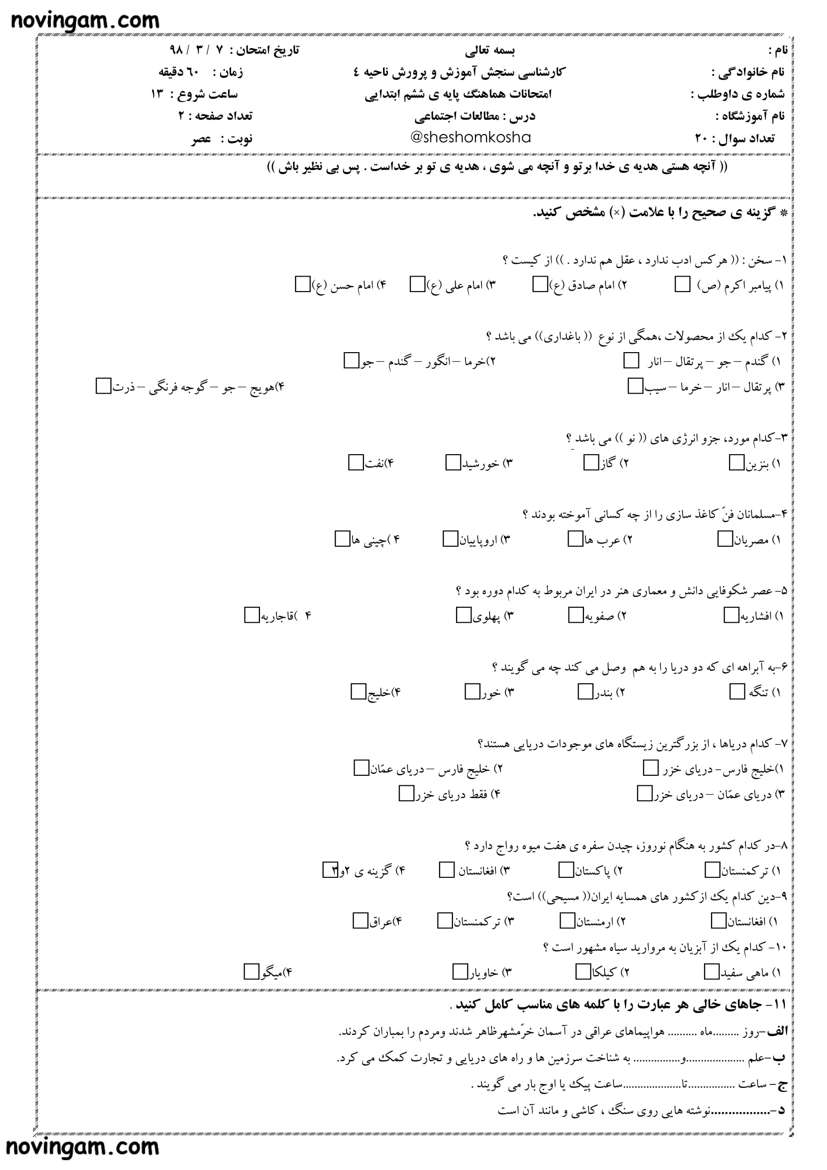 novingam.com
نام : بسمه تعالی تاریخ امتحان : ۷ / ۳ / ۹۸
نام خانوادگی : کارشناسی سنجش آموزش و پرورش ناحیه ٤ زمان : ٦۰ دقیقه
شماره ی داوطلب : امتحانات هماهنگ پایه ی ششم ابتدایی ساعت شروع : ۱۳
نام آموزشگاه : درس : مطالعات اجتماعی تعداد صفحه : ۲
تعداد سوال : ۲۰ @sheshomkosha نوبت : عصر
(( آنچه هستی هدیه ی خدا برتو و آنچه می شوی ، هدیه ی تو بر خداست . پس بی نظیر باش ))
* گزینه ی صحیح را با علامت (×) مشخص کنید.
۱- سخن : (( هرکس ادب ندارد ، عقل هم ندارد . )) از کیست ؟
۱) پیامبر اکرم (ص) ۲) امام صادق (ع) ۳) امام علی (ع) ۴) امام حسن (ع)
۲- کدام یک از محصولات ،همگی از نوع (( باغداری)) می باشد ؟
۱) گندم – جو – پرتقال – انار ۲)خرما – انگور – گندم – جو
۳) پرتقال – انار – خرما – سیب ۴)هویج – جو – گوجه فرنگی – ذرت
۳-کدام مورد، جزو انرژی های (( نو )) می باشد ؟
۱) بنزین ۲) گاز ۳) خورشید ۴)نفت
۴-مسلمانان فنّ کاغذ سازی را از چه کسانی آموخته بودند ؟
۱) مصریان ۲) عرب ها ۳) اروپاییان ۴ )چینی ها
۵- عصر شکوفایی دانش و معماری هنر در ایران مربوط به کدام دوره بود ؟
۱) افشاریه ۲) صفویه ۳) پهلوی ۴ )قاجاریه
۶-به آبراهه ای که دو دریا را به هم وصل می کند چه می گویند ؟
۱) تنگه ۲) بندر ۳) خور ۴)خلیج
۷- کدام دریاها ، از بزرگترین زیستگاه های موجودات دریایی هستند؟
۱)خلیج فارس- دریای خزر ۲) خلیج فارس – دریای عمّان
۳) دریای عمّان – دریای خزر ۴) فقط دریای خزر
۸-در کدام کشور به هنگام نوروز، چیدن سفره ی هفت میوه رواج دارد ؟
۱) ترکمنستان ۲) پاکستان ۳) افغانستان ۴) گزینه ی ۲و۳
۹-دین کدام یک ازکشور های همسایه ایران(( مسیحی)) است؟
۱) افغانستان ۲) ارمنستان ۳) ترکمنستان ۴)عراق
۱۰- کدام یک از آبزیان به مروارید سیاه مشهور است ؟
۱) ماهی سفید ۲) کیلکا ۳) خاویار ۴)میگو
۱۱- جاهای خالی هر عبارت را با کلمه های مناسب کامل کنید .
الف-روز .........ماه .......... هواپیماهای عراقی در آسمان خرّمشهرظاهر شدند ومردم را بمباران کردند.
ب-علم ....................و................ به شناخت سرزمین ها و راه های دریایی و تجارت کمک می کرد.
ج- ساعت ................تا....................ساعت پیک یا اوج بار می گویند .
د-.................نوشته هایی روی سنگ ، کاشی و مانند آن است
novingam.com